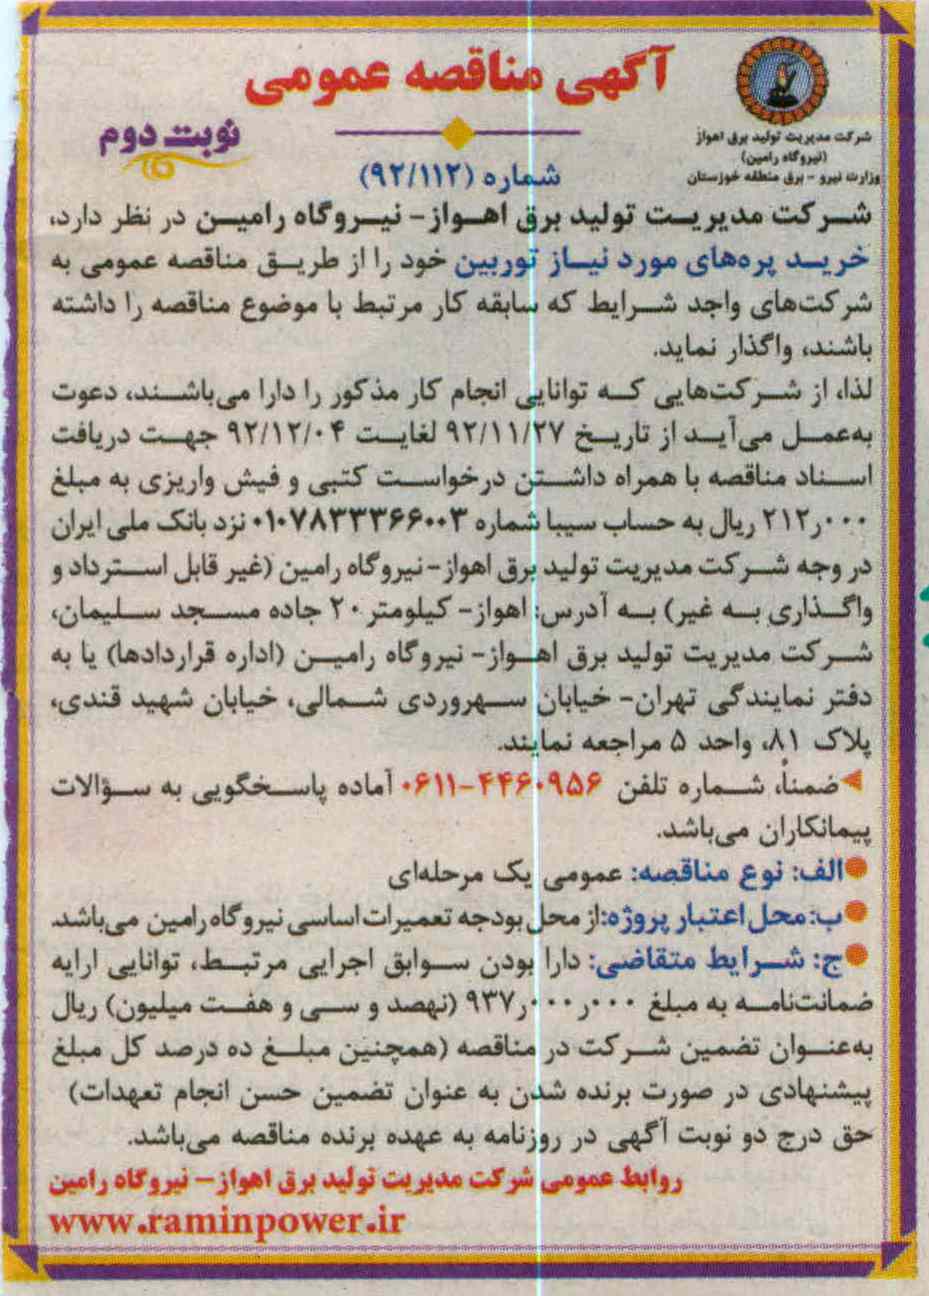 آگهی مناقصه عمومی
نوبت دوم
شرکت مدیریت تولید برق اهواز
(نیروگاه رامین)
وزارت نیرو - برق منطقه خوزستان
شماره (۹۲/۱۱۲)
شرکت مدیریت تولید برق اهواز- نیروگاه رامین در نظر دارد،
خرید پره‌های مورد نیاز توربین خود را از طریق مناقصه عمومی به
شرکت‌های واجد شرایط که سابقه کار مرتبط با موضوع مناقصه را داشته
باشند، واگذار نماید.
لذا، از شرکت‌هایی که توانایی انجام کار مذکور را دارا می‌باشند، دعوت
به‌عمل می‌آید از تاریخ ۹۲/۱۱/۲۷ لغایت ۹۲/۱۲/۰۴ جهت دریافت
اسناد مناقصه با همراه داشتن درخواست کتبی و فیش واریزی به مبلغ
۲۱۲ر۰۰۰ ریال به حساب سیبا شماره ۰۱۰۷۸۳۳۳۶۶۰۰۳ نزد بانک ملی ایران
در وجه شرکت مدیریت تولید برق اهواز-نیروگاه رامین (غیر قابل استرداد و
واگذاری به غیر) به آدرس: اهواز- کیلومتر ۲۰ جاده مسجد سلیمان،
شرکت مدیریت تولید برق اهواز- نیروگاه رامین (اداره قراردادها) یا به
دفتر نمایندگی تهران- خیابان سهروردی شمالی، خیابان شهید قندی،
پلاک ۸۱، واحد ۵ مراجعه نمایند.
ضمناً، شماره تلفن ۴۴۶۰۹۵۶-۰۶۱۱ آماده پاسخگویی به سؤالات
پیمانکاران می‌باشد.
الف: نوع مناقصه: عمومی یک مرحله‌ای
ب: محل اعتبار پروژه: از محل بودجه تعمیرات اساسی نیروگاه رامین می‌باشد.
ج: شرایط متقاضی: دارا بودن سوابق اجرایی مرتبط، توانایی ارایه
ضمانت‌نامه به مبلغ ۹۳۷ر۰۰۰ر۰۰۰ (نهصد و سی و هفت میلیون) ریال
به‌عنوان تضمین شرکت در مناقصه (همچنین مبلغ ده درصد کل مبلغ
پیشنهادی در صورت برنده شدن به عنوان تضمین حسن انجام تعهدات)
حق درج دو نوبت آگهی در روزنامه به عهده برنده مناقصه می‌باشد.
روابط عمومی شرکت مدیریت تولید برق اهواز- نیروگاه رامین
www.raminpower.ir